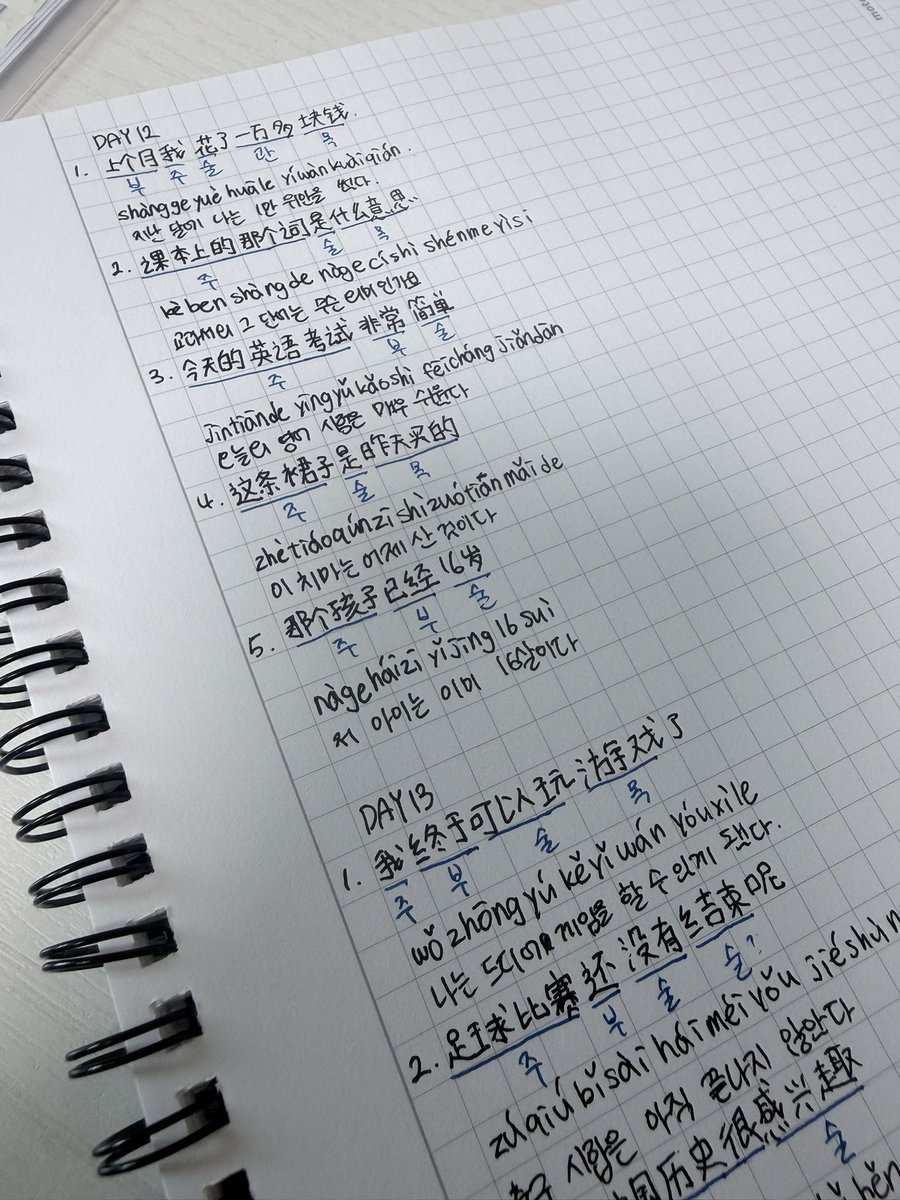 DAY 12
1. 上个月我 花了 一万多 块钱.
부 주 술 관 목
shàng ge yuè huāle yíwàn kuài qián.
지난 달에 나는 1만 위안을 썼다.
2. 课本上的那个词是什么意思
주 술 목
kè ben shàng de nàge cí shì shénme yìsi
교과서의 그 단어는 무슨 의미인가요
3. 今天的 英语 考试 非常 简单
주 부 술
jīntiānde yīngyǔ kǎoshì fēicháng jiǎndān
오늘의 영어 시험은 매우 쉬웠다
4. 这条裙子是昨天买的
주 술 목
zhè tiáo qúnzi shì zuótiān mǎi de
이 치마는 어제 산 것이다
5. 那个孩子 已经 16岁
주 부 술
nàge háizi yǐjing 16 suì
저 아이는 이미 16살이다
DAY 13
1. 我 终于可以玩 游戏了
주 부 술 목
wǒ zhōngyú kěyǐ wán yóuxìle
나는 드디어 게임을 할 수 있게 됐다.
2. 足球比赛 还 没有结束呢
주 부 술 술?
zúqiú bǐsài hái méi yǒu jiéshù
시합은 아직 끝나지 않았다
国历史很感兴趣
술
hěn